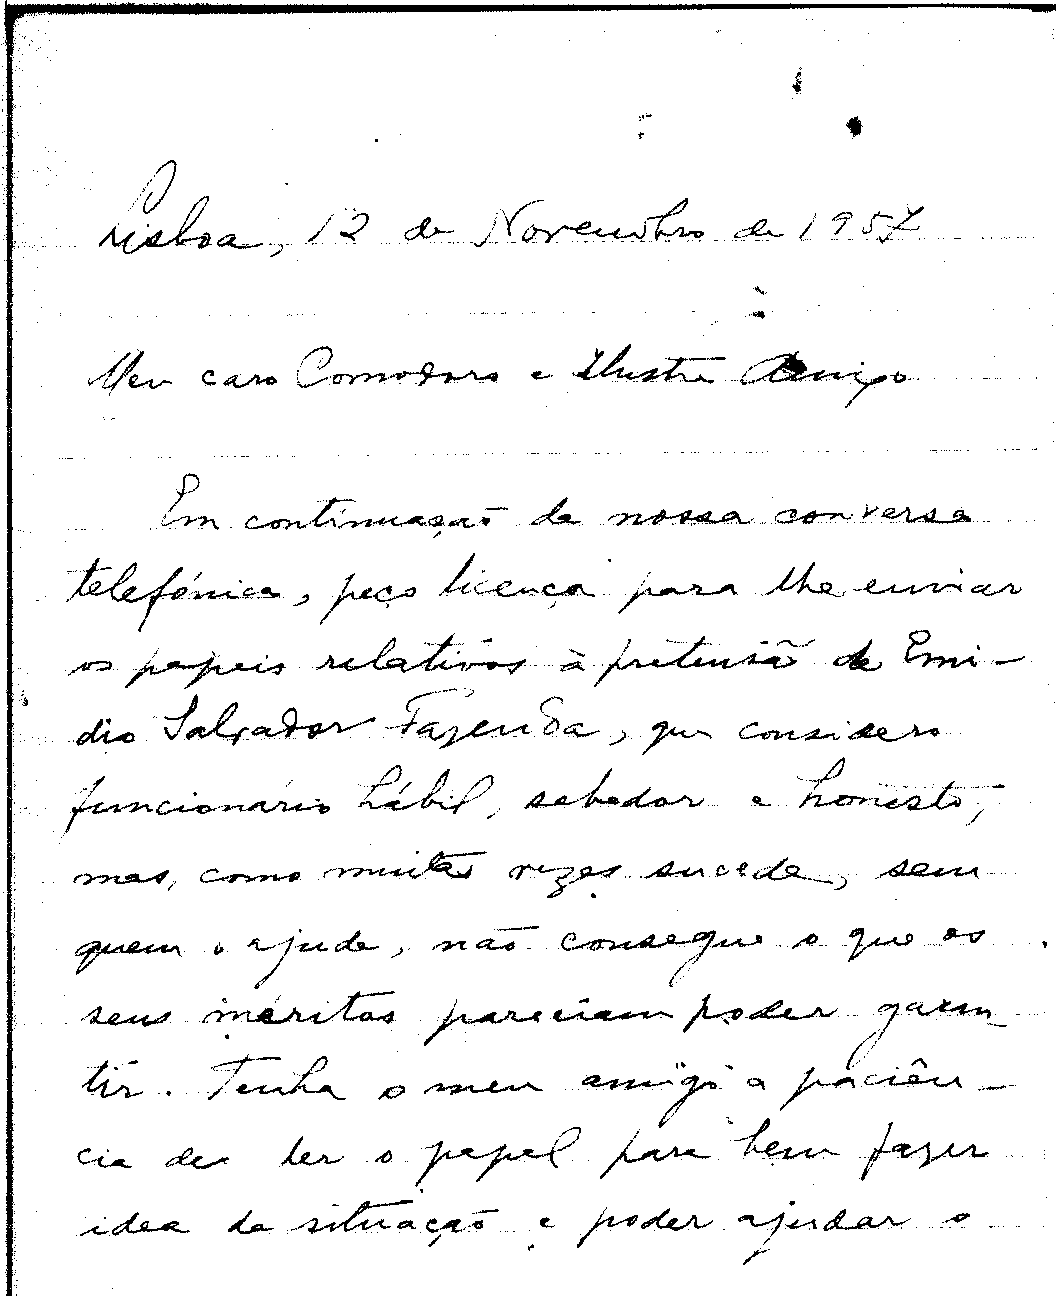 Lisboa, 12 de Novembro de 1957
Meu caro Comodoro e Ilustre Amigo
Em continuação da nossa conversa
telefónica, peço licença para lhe enviar
os papeis relativos à pretensão de Emi-
dio Salvador Fazenda, que considero
funcionário hábil, sabedor e honesto,
mas, como muitas vezes sucede, sem
quem o ajude, não consegue o que os
seus méritos pareciam poder garan
tir. Tenha o meu amigo a paciên-
cia de ler o papel para bem fazer
idea da situação e poder ajudar o